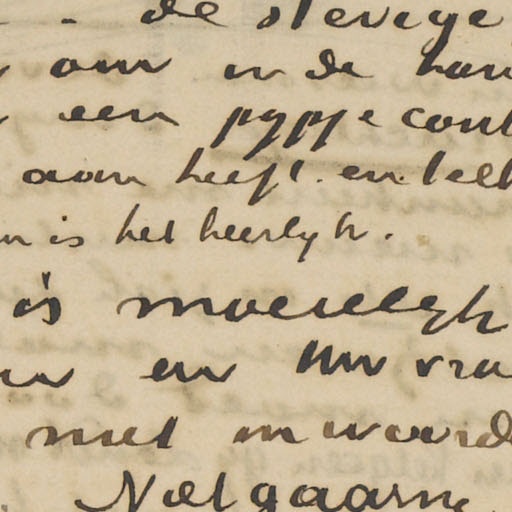 de stevige
om in de han
een pypje cont
aan heeft. en. telk
is het heerlyk.
is moeielyk
en Uw vra
met
Nol gaarne